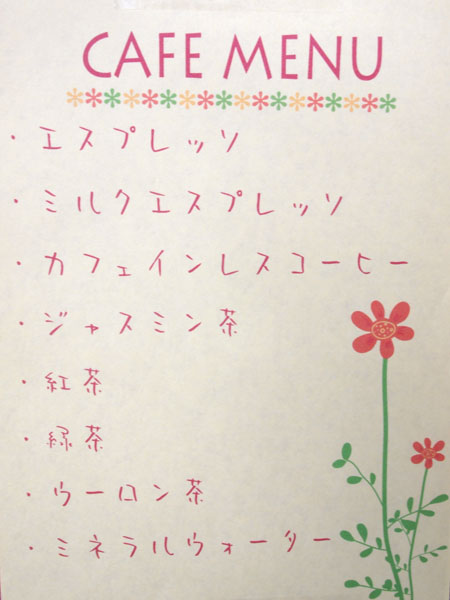 CAFE MENU
・エスプレッソ
・ミルクエスプレッソ
・カフェインレスコーヒー
・ジャスミン茶
・紅茶
・緑茶
・ウーロン茶
・ミネラルウォーター